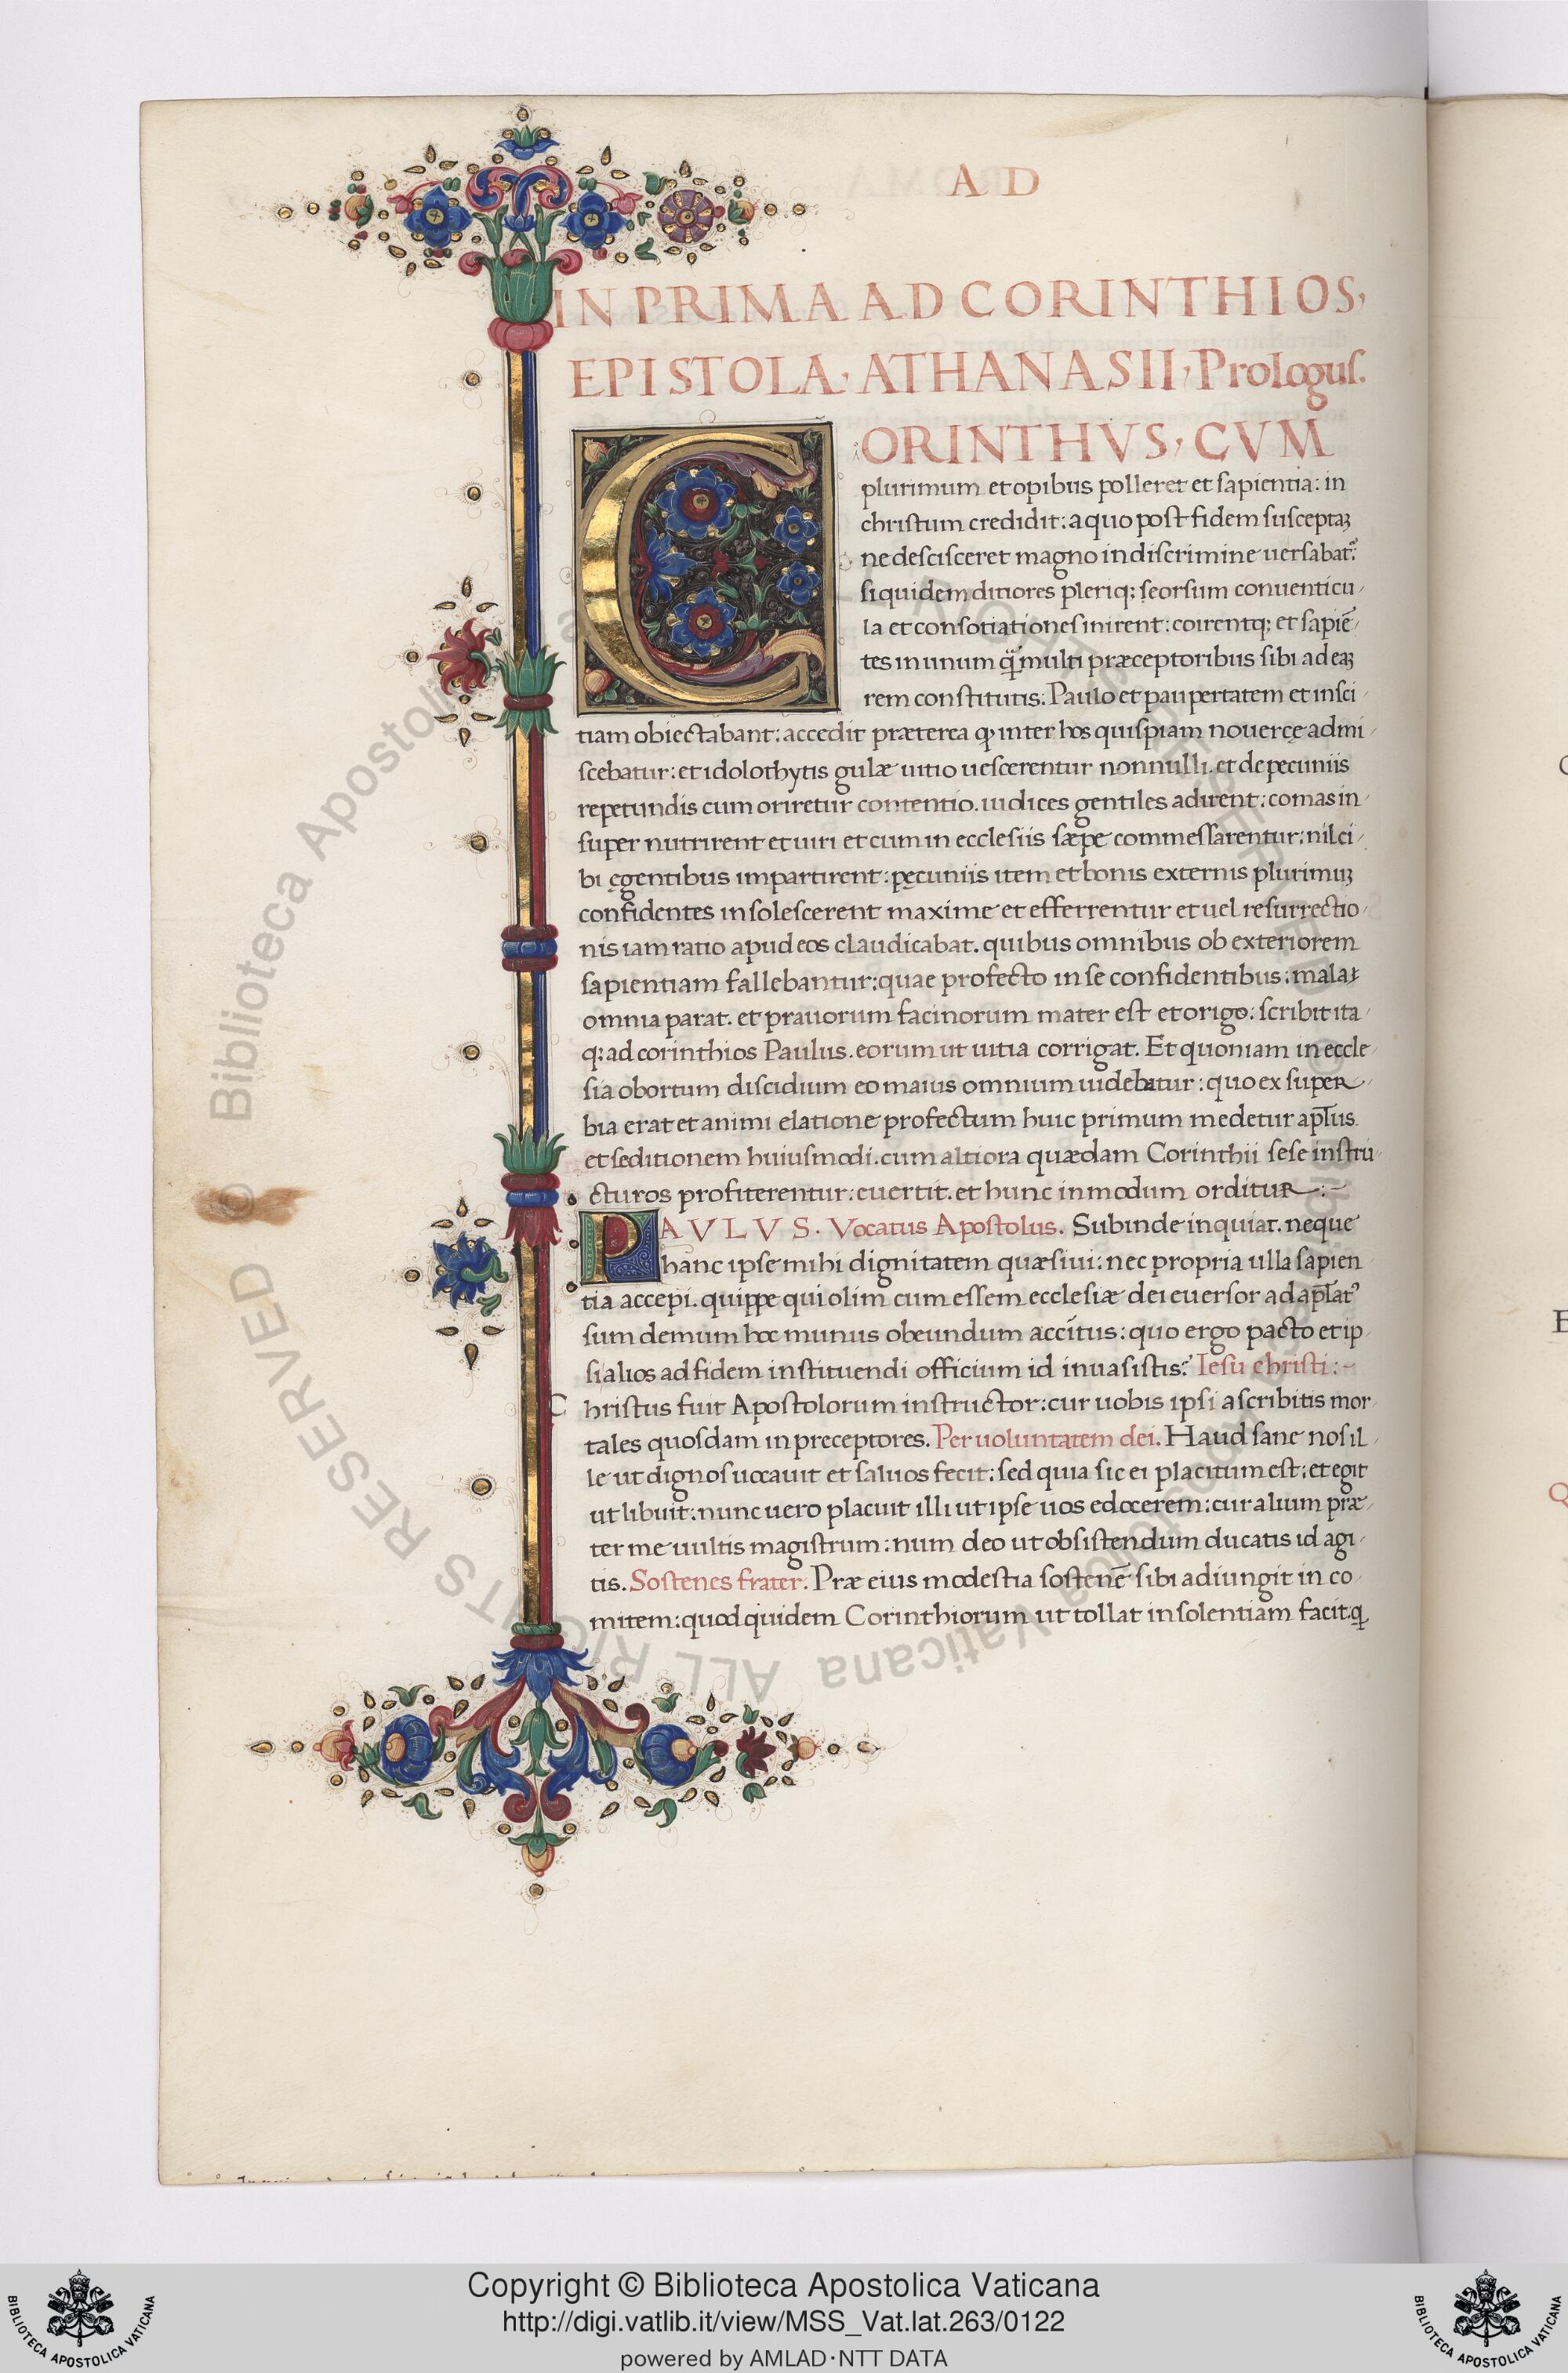 AD
IN PRIMA AD CORINTHIOS,
EPISTOLA, ATHANASII, Prologus.
CORINTHVS, CVM
plurimum et opibus polleret et sapientia: in
christum credidit: a quo post fidem susceptaꝫ
ne descisceret magno in discrimine uersabat᷑:
siquidem ditiores pleriq; seorsum conuenticu
la et consotiationes inirent: coirentq; et sapiē
tes in unum ꝙ̃ multi præceptoribus sibi ad eaꝫ
rem constitutis: Paulo et paupertatem et insci
tiam obiectabant: accedit præterea ꝙ inter hos quispiam nouercę admi
scebatur: et idolothytis gulæ uitio uescerentur nonnulli. et de pecuniis
repetundis cum oriretur contentio. iudices gentiles adirent: comas in
super nutrirent et uiri et cum in ecclesiis sæpe commessarentur: nil ci
bi ęgentibus impartirent: pęcuniis item et bonis externis plurimuꝫ
confidentes insolescerent maxime et efferrentur et uel resurrectio
nis iam ratio apud eos claudicabat. quibus omnibus ob exteriorem
sapientiam fallebantur: quae profecto in se confidentibus: malaꝝ
omnia parat. et prauorum facinorum mater est et origo: scribit ita
q; ad corinthios Paulus. eorum ut uitia corrigat. Et quoniam in eccle
sia obortum discidium eo maius omnium uidebatur: quo ex super
bia erat et animi elatione profectum huic primum medetur apl̄us.
et seditionem huiusmodi. cum altiora quædam Corinthii sese instru
cturos profiterentur: euertit. et hunc in modum orditur:~
PAVLVS. Vocatus Apostolus. Subinde inquiat. neque
hanc ipse mihi dignitatem quæsiui: nec propria ulla sapien
tia accepi. quippe qui olim cum essem ecclesiæ dei euersor ad apl̄atꝰ
sum demum hoc munus obeundum accitus: quo ergo pacto et ip
si alios ad fidem instituendi officium id inuasistis? Iesu christi:~
Christus fuit Apostolorum instructor: cur uobis ipsi ascribitis mor
tales quosdam in preceptores. Per uoluntatem dei. Haud sane nos il
le ut dignos uocauit et saluos fecit: sed quia sic ei placitum est: et egit
ut libuit: nunc uero placuit illi ut ipse uos edocerem: cur alium præ
ter me uultis magistrum: num deo ut obsistendum ducatis id agi
tis. Sostenes frater. Præ eius modestia sostenē sibi adiungit in co
mitem: quod quidem Corinthiorum ut tollat insolentiam facit. ꝙ
© Biblioteca Apostolica Vaticana ALL RIGHTS RESERVED
Copyright © Biblioteca Apostolica Vaticana
http://digi.vatlib.it/view/MSS_Vat.lat.263/0122
powered by AMLAD·NTT DATA
BIBLIOTECA APOSTOLICA VATICANA
BIBLIOTECA APOSTOLICA VATICANA